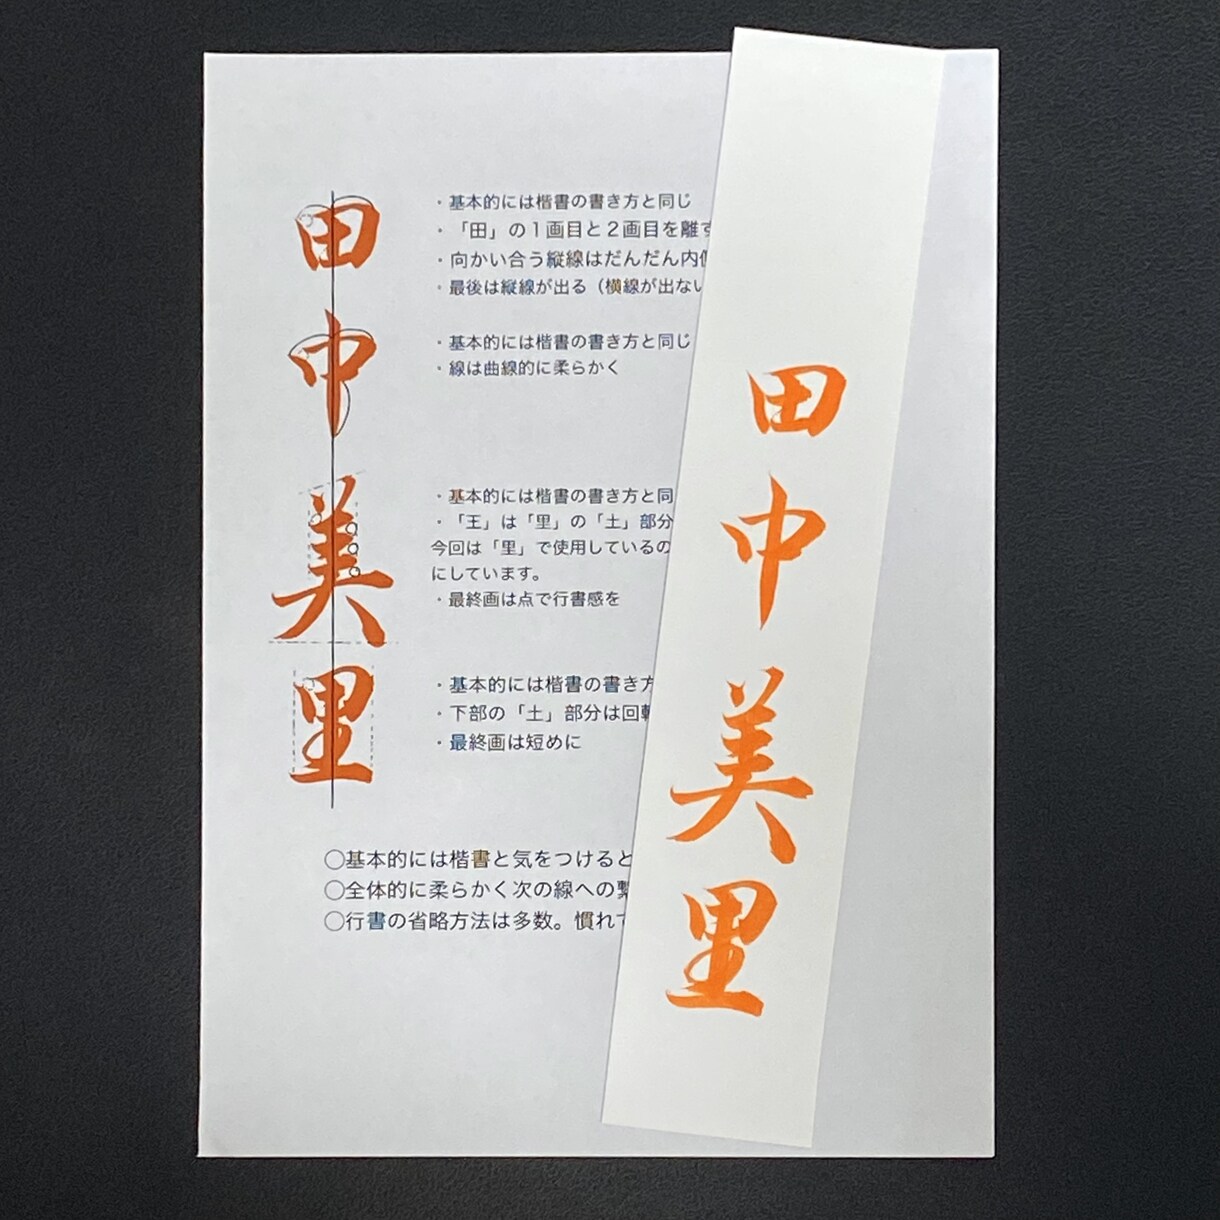 田中美里
・基本的には楷書の書き方と同じ
・「田」の１画目と２画目を離す
・向かい合う縦線はだんだん内
・最後は縦線が出る（横線が出ない
・基本的には楷書の書き方と同じ
・線は曲線的に柔らかく
・基本的には楷書の書き方と同
・「王」は「里」の「土」部分
今回は「里」で使用しているの
にしています。
・最終画は点で行書感を
・基本的には楷書の書き方
・下部の「土」部分は回転
・最終画は短めに
○基本的には楷書と気をつけると
○全体的に柔らかく次の線への繋
○行書の省略方法は多数。慣れて
田中美里